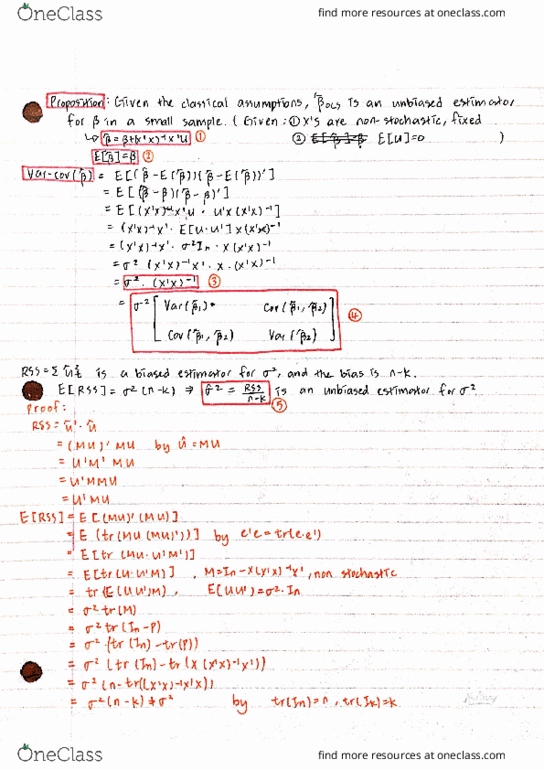 OneClass find more resources at oneclass.com
Proposition: Given the classical assumptions, β̂OLS is an unbiased estimator
for β in a small sample. (Given: ① X's are non-stochastic, fixed
↳ β̂ = β + (X'X)⁻¹X'U ① ② E[U]=0 )
E[β̂] = β ②
Var-cov(β̂) = E[(β̂ - E(β̂))(β̂ - E(β̂))']
= E[(β̂ - β)(β̂ - β)']
= E[(X'X)⁻¹X'U · U'X(X'X)⁻¹]
= (X'X)⁻¹X' · E[U·U'] X(X'X)⁻¹
= (X'X)⁻¹X' · σ²In · X(X'X)⁻¹
= σ² (X'X)⁻¹X' · X · (X'X)⁻¹
= σ² · (X'X)⁻¹ ③
= σ² [ Var(β̂₁) Cov(β̂₁, β̂₂)
Cov(β̂₁, β̂₂) Var(β̂₂) ] ④
RSS = Σ û²t is a biased estimator for σ², and the bias is n-k.
E[RSS] = σ²(n-k) ⇒ σ̂² = RSS/n-k is an unbiased estimator for σ².
⑤
Proof:
RSS = û' · û
= (MU)' MU by û = MU
= U'M' MU
= U'MMU
= U'MU
E[RSS] = E[(MU)'(MU)]
= E (tr(MU(MU)')) by e'e = tr(e·e')
= E[tr (MU·U'M')]
= E[tr(U·U'M)] , M = In - X(X'X)⁻¹X', non stochastic
= tr(E(UU')M) , E(UU') = σ²·In
= σ² tr(M)
= σ² tr(In - P)
= σ² (tr(In) - tr(P))
= σ² (tr(In) - tr(X(X'X)⁻¹X'))
= σ² (n - tr((X'X)⁻¹X'X))
= σ² (n-k) ≠ σ² by tr(In) = n, tr(Ik) = k
OneClass find more resources at oneclass.com